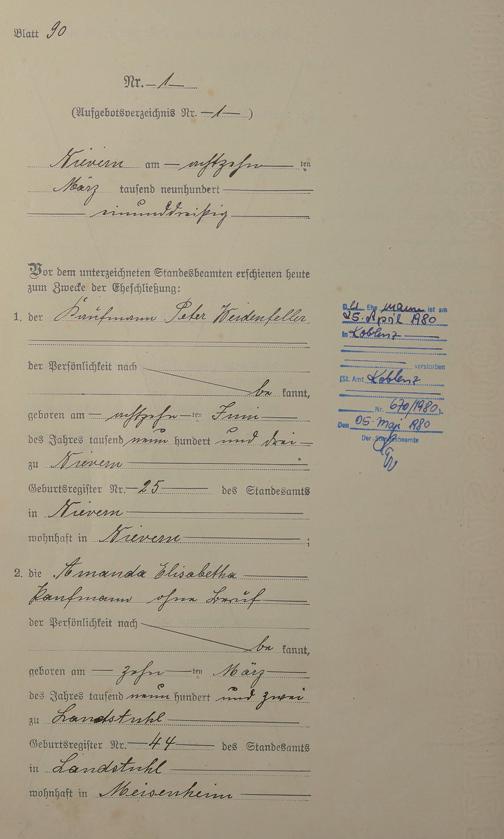 Blatt 90
Nr. 1
(Aufgebotsverzeichnis Nr. 1)
Nievern am achtzehn ten
März tausend neunhundert
einunddreißig
Vor dem unterzeichneten Standesbeamten erschienen heute
zum Zwecke der Eheschließung:
1. der Kaufmann Peter Weidenfeller
der Persönlichkeit nach
be kannt,
geboren am achtzehn ten Juni
des Jahres tausend neun hundert und drei
zu Nievern
Geburtsregister Nr. 25 des Standesamts
in Nievern
wohnhaft in Nievern ;
2. die Amanda Elisabetha
Kaufmann ohne Beruf
der Persönlichkeit nach
be kannt,
geboren am zehn ten März
des Jahres tausend neun hundert und zwei
zu Landstuhl
Geburtsregister Nr. 44 des Standesamts
in Landstuhl
wohnhaft in Meisenheim
Der Ehemann ist am
25. April 1980
in Koblenz
verstorben
(St. Amt Koblenz
Nr. 670/1980.
Den 05. Mai 1980
Der Standesbeamte